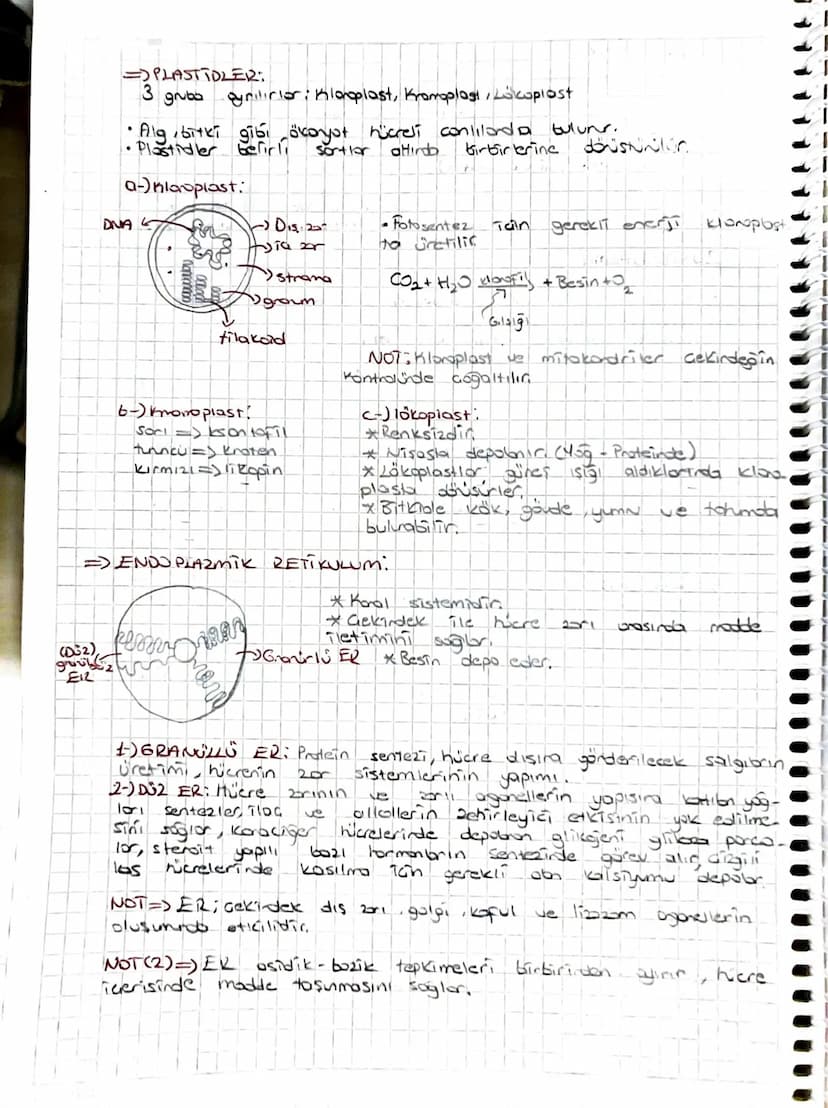 => PLASTİDLER:
3 gruba ayrılırlar: Kloroplast, Kromoplast, Lökoplast
• Alg, bitki gibi ökaryot hücreli canlılarda bulunur.
• Plastidler belirli şartlar altında birbirlerine dönüştürülür.
a-) Kloroplast:
DNA
Dış zar
iç zar
stroma
granum
tilakoid
• Fotosentez için gerekli enerji kloroplast
ta üretilir
CO2 + H2O klorofil + Besin + O2
Gışığı
NOT: Kloroplast ve mitokondriler çekirdeğin
kontrolünde çoğaltılır.
b-) Kromoplast:
sarı => ksantofil
turuncu => kroten
kırmızı => likopin
c-) lökoplast:
* Renksizdir.
* Nişasta depolanır. (Yağ - Proteinde)
* Lökoplastlar güneş ışığı aldıklarında kloro
plasta dönüşürler.
* Bitkide kök, gövde, yumru ve tohumda
bulunabilir.
=> ENDOPLAZMİK RETİKULUM:
(Düz)
granülsüz
ER
Granürlü ER
* Kanal sistemidir.
* Çekirdek ile hücre zarı arasında madde
iletimini sağlar.
* Besin depo eder.
1-) GRANÜLLÜ ER: Protein sentezi, hücre dışına gönderilecek salgıların
üretimi, hücrenin zar sistemlerinin yapımı.
2-) DÜZ ER: Hücre zarının ve zarlı organellerin yapısına katılan yağ-
ları sentezler, ilaç ve alkollerin zehirleyici etkisinin yok edilme-
sini sağlar, karaciğer hücrelerinde depolanan glikojeni parça-
lar, steroit yapılı bazı hormonların sentezinde görev alır, çizgili
kas hücrelerinde kasılma için gerekli olan kalsiyumu depolar.
NOT => ER; çekirdek dış zarı, golgi, koful ve lizozom organellerin
oluşumunda etkilidir.
NOT(2) => ER asidik - bazik tepkimeleri birbirinden ayırır, hücre
içerisinde madde taşınmasını sağlar.